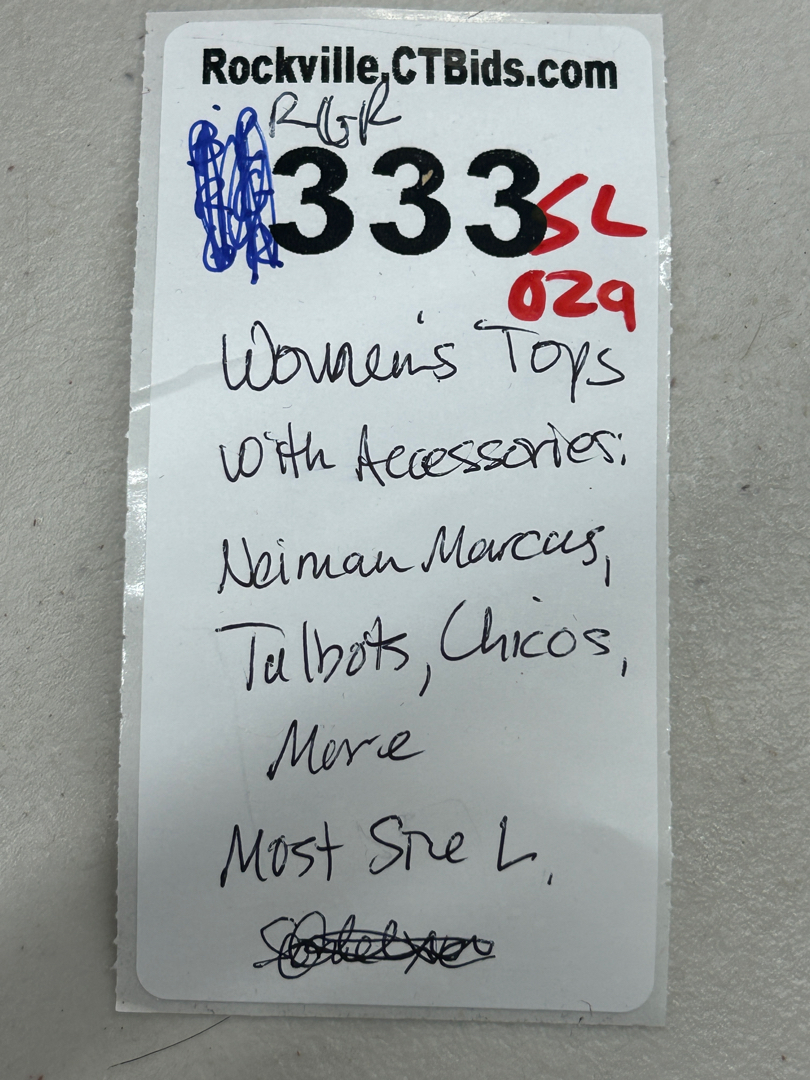 Rockville.CTBids.com
RGR
333 SL
029
Women's Tops
With Accessories:
Neiman Marcus,
Talbots, Chicos,
More
Most Size L.